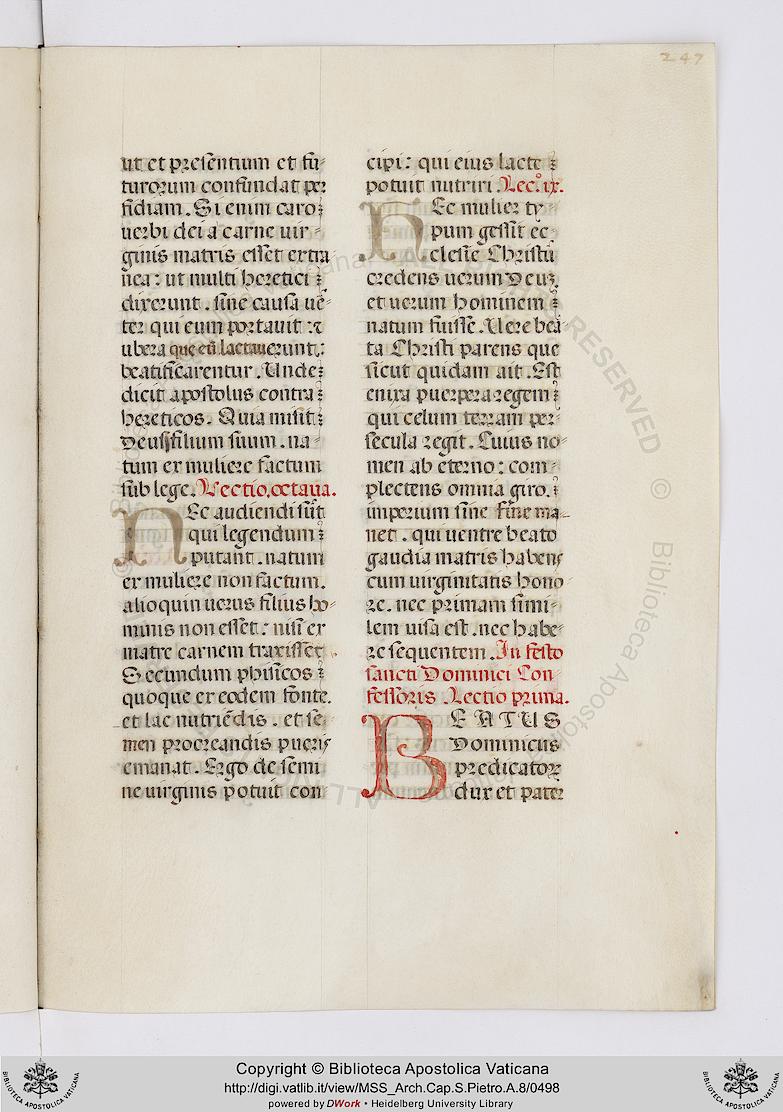 247
ut et presentium et fu-
turorum confundat per
fidiam. Si enim caro
uerbi dei a carne uir-
ginis matris esset extra
nea: ut multi heretici
dixerunt. sine causa uē-
ter qui eum portauit: ⁊
ubera que eū lactauerunt:
beatificarentur. Unde
dicit apostolus contra
hereticos. Quia misit
deus filium suum. na-
tum ex muliere factum
sub lege. Lectio. octaua.
NEc audiendi sūt
qui legendum
putant. natum
ex muliere non factum.
alioquin uerus filius ho-
minis non esset: nisi ex
matre carnem traxisset.
Secundum phisicos
quoque ex eodem fonte.
et lac nutriēdis. et se-
men procreandis pueris
emanat. Ergo de semi
ne uirginis potuit con-
cipi: qui eius lacte
potuit nutriri. Lec.º ix.
HEc mulier ty-
pum gessit ec-
clesie Christū
credens uerum Deuz,
et uerum hominem
natum fuisse. Uere bea
ta Christi parens que
sicut quidam ait. Est
enixa puerpera regem
qui celum terram per-
secula regit. Cuius no-
men ab eterno: com-
plectens omnia giro.
imperium sine fine ma-
net. qui uentre beato
gaudia matris habens
cum uirginitatis hono-
re. nec primam simi-
lem uisa est. nec habe-
re sequentem. In festo
sancti Dominici Con-
fessoris Lectio prima.
BEATUS
Dominicus
predicatoꝝ
dux et pater
Copyright © Biblioteca Apostolica Vaticana
http://digi.vatlib.it/view/MSS_Arch.Cap.S.Pietro.A.8/0498
powered by DWork • Heidelberg University Library
BIBLIOTECA APOSTOLICA VATICANA
BIBLIOTECA APOSTOLICA VATICANA